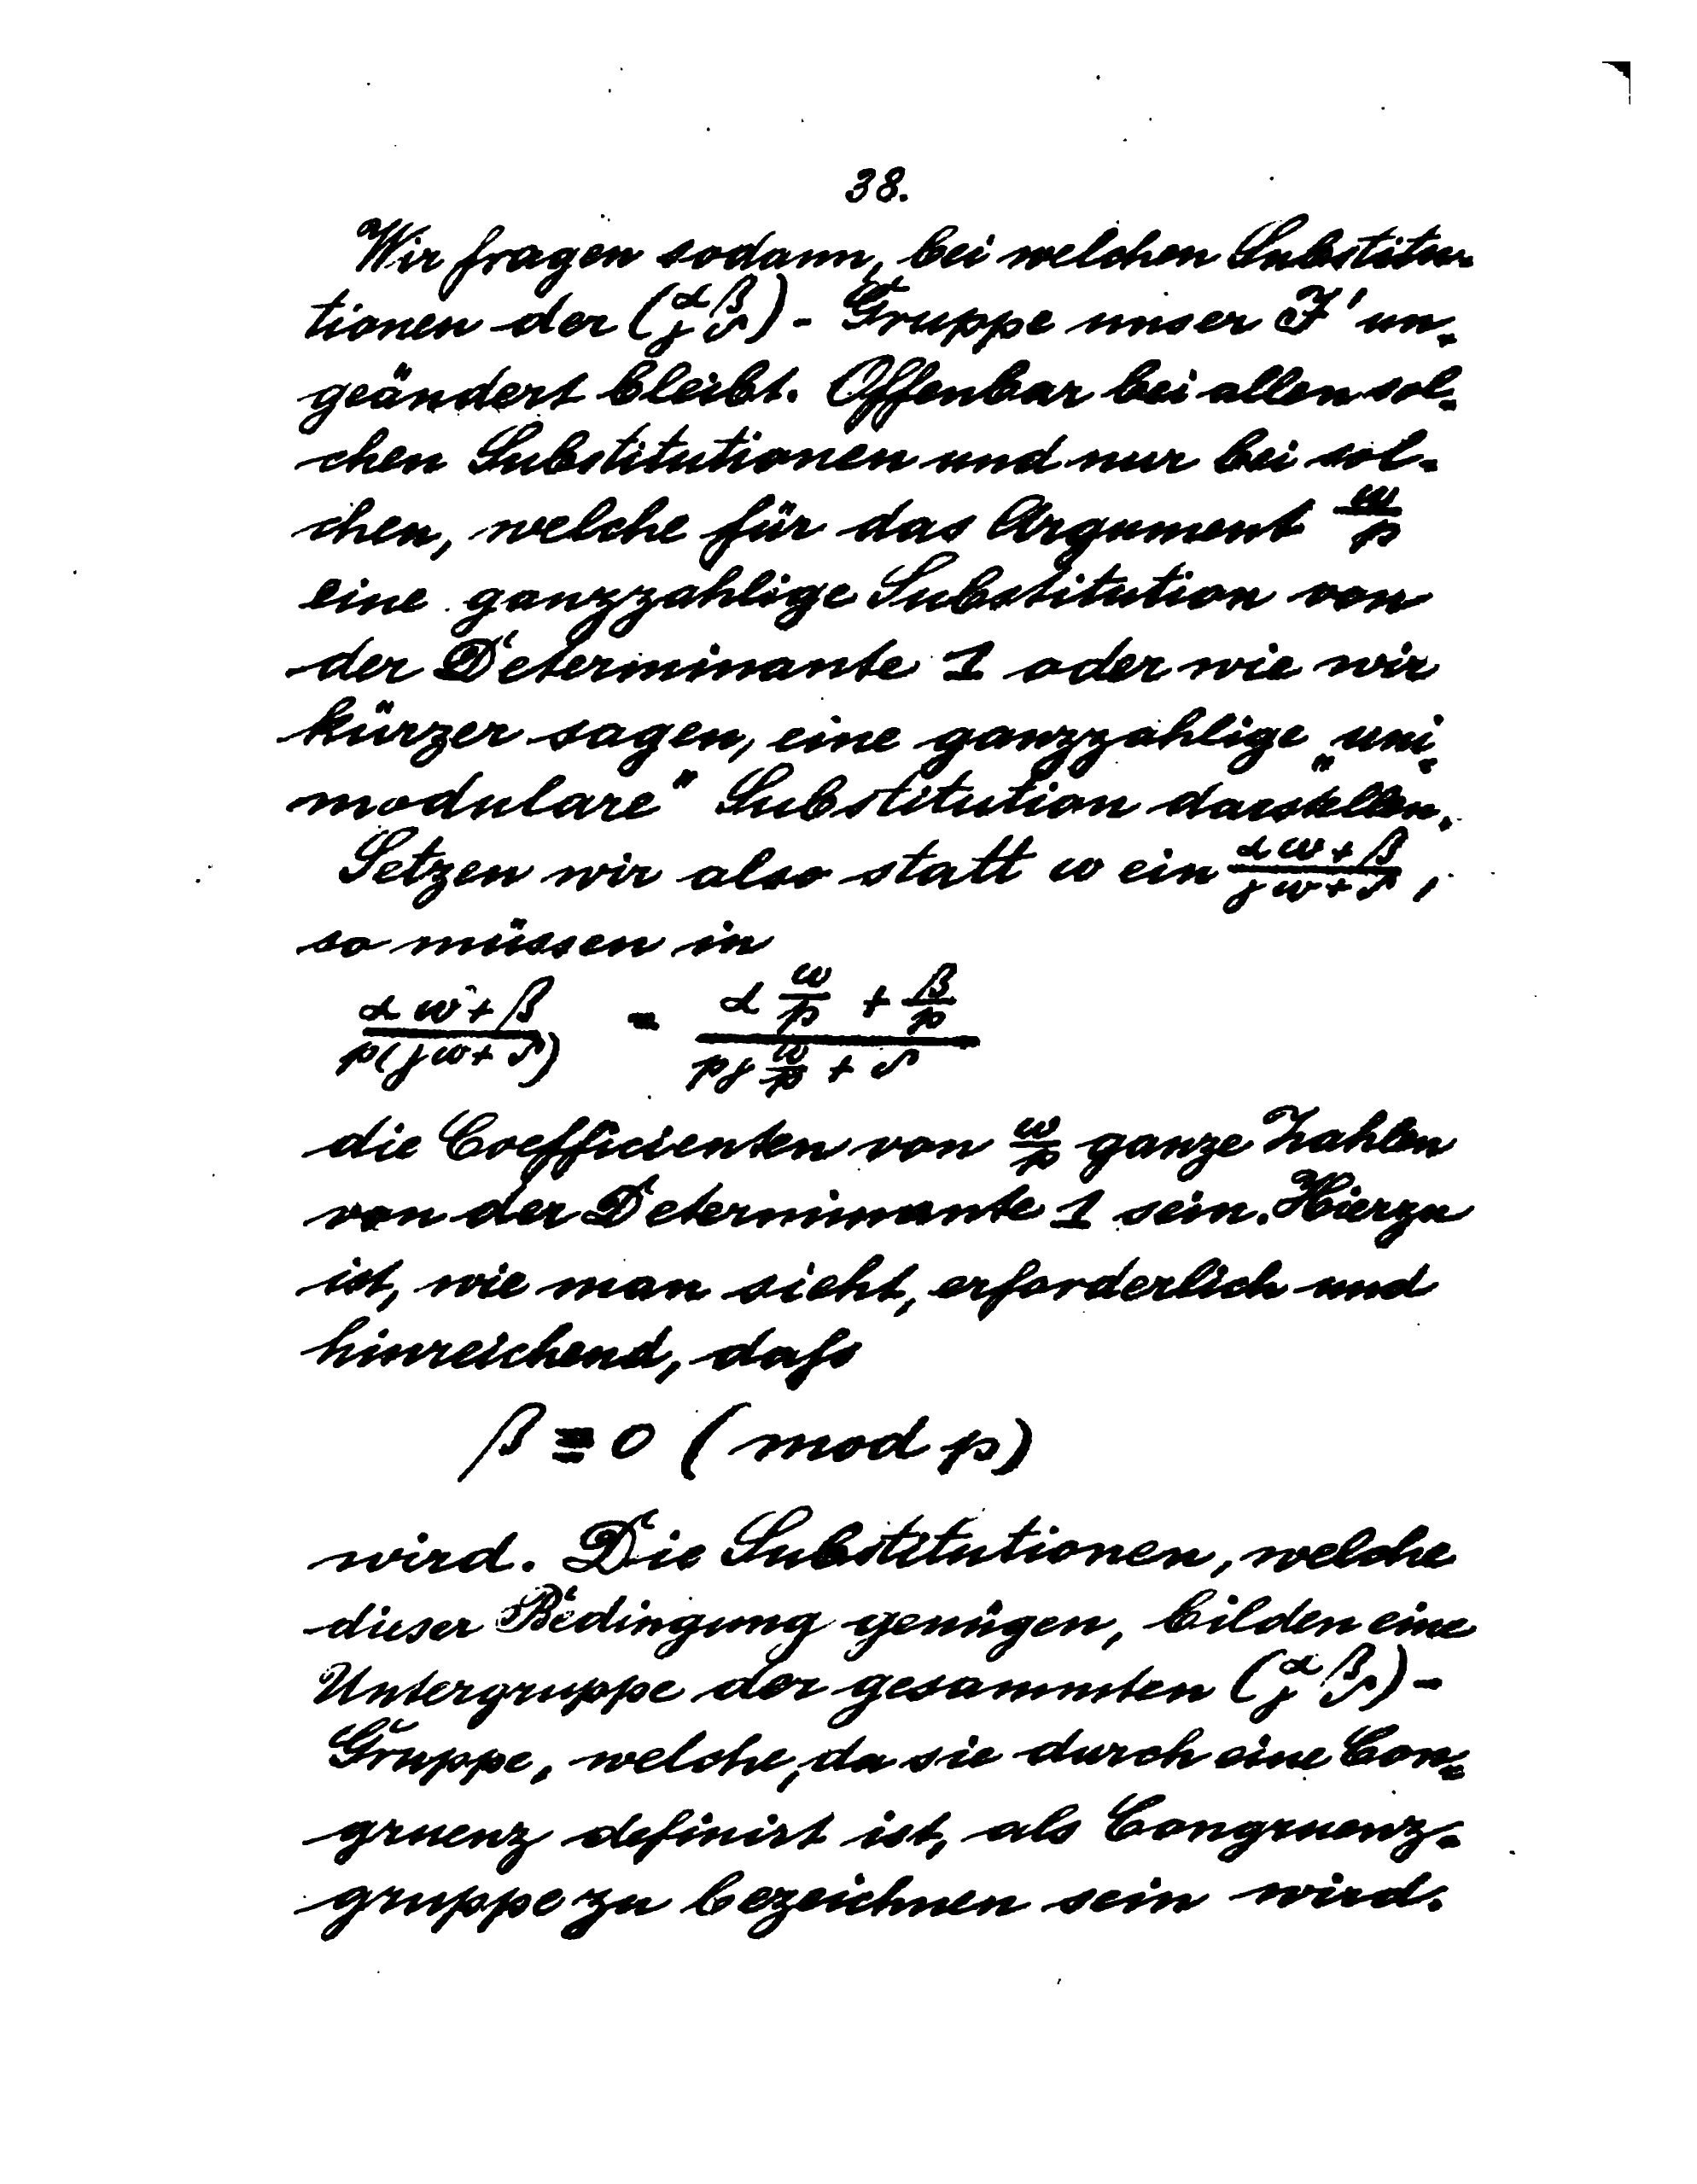 38.
Wir fragen sodann, bei welchen Substitu-
tionen der (α β γ δ) - Gruppe unser J' un-
geändert bleibt. Offenbar bei allen sol-
chen Substitutionen und nur bei sol-
chen, welche für das Argument ω/p
eine ganzzahlige Substitution von
der Determinante 1 oder wie wir
kürzer sagen, eine ganzzahlige „uni-
modulare" Substitution darstellen.
Setzen wir also statt ω ein (αω+β)/(γω+δ),
so müssen in
(αω+β)/(p(γω+δ)) = (α ω/p + β/p)/(pγ ω/p + δ)
die Coefficienten von ω/p ganze Zahlen
von der Determinante 1 sein. Hierzu
ist, wie man sieht, erforderlich und
hinreichend, dafs
β ≡ 0 (mod p)
wird. Die Substitutionen, welche
dieser Bedingung genügen, bilden eine
Untergruppe der gesammten (α β γ δ) -
Gruppe, welche, da sie durch eine Con-
gruenz definirt ist, als Congruenz-
gruppe zu bezeichnen sein wird.